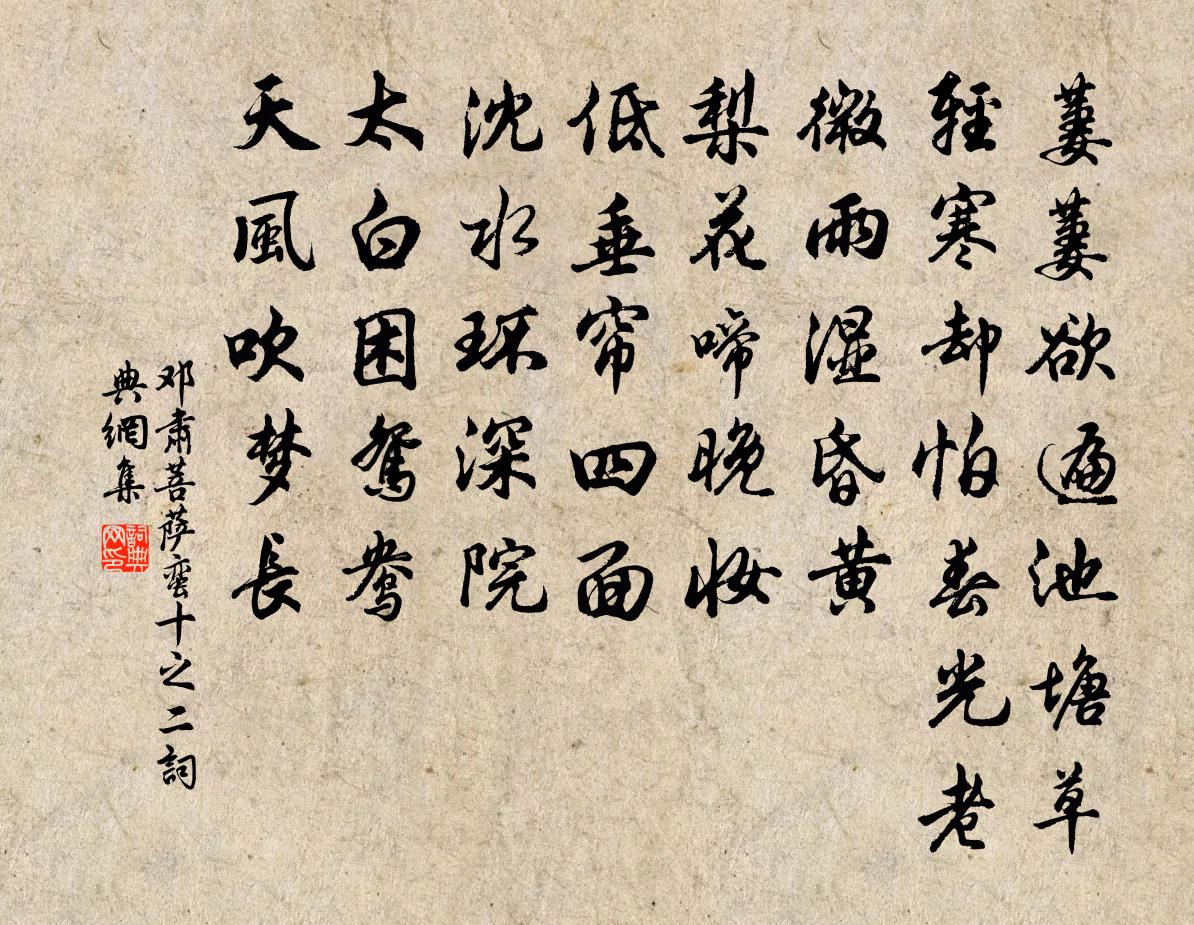 萋萋欲遍池塘草
輕寒却怕春光老
微雨湿昏黄
梨花啼晚妆
低垂帘四面
沈水环深院
太白困鴛鴦
天風吹梦長
邓肅菩萨蛮十之二詞
典網集
詞典网印